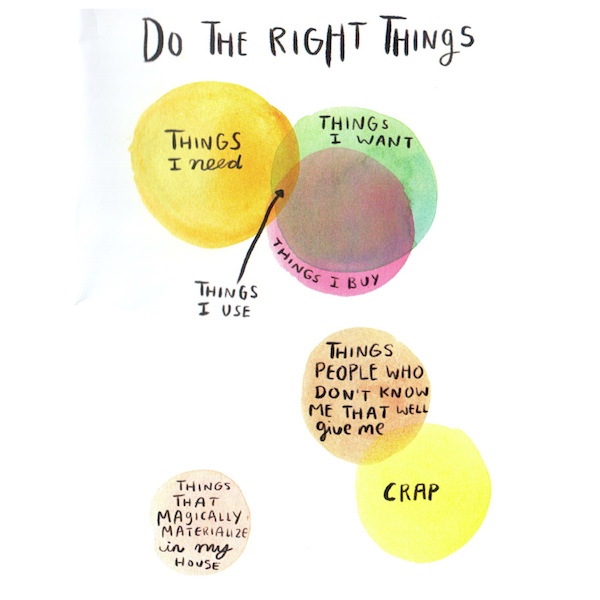 DO THE RIGHT THINGS
THINGS
I need
THINGS
I WANT
THINGS I BUY
THINGS
I USE
THINGS
PEOPLE WHO
DON'T KNOW
ME THAT WELL
give me
CRAP
THINGS
THAT
MAGICALLY
MATERIALIZE
in my
HOUSE